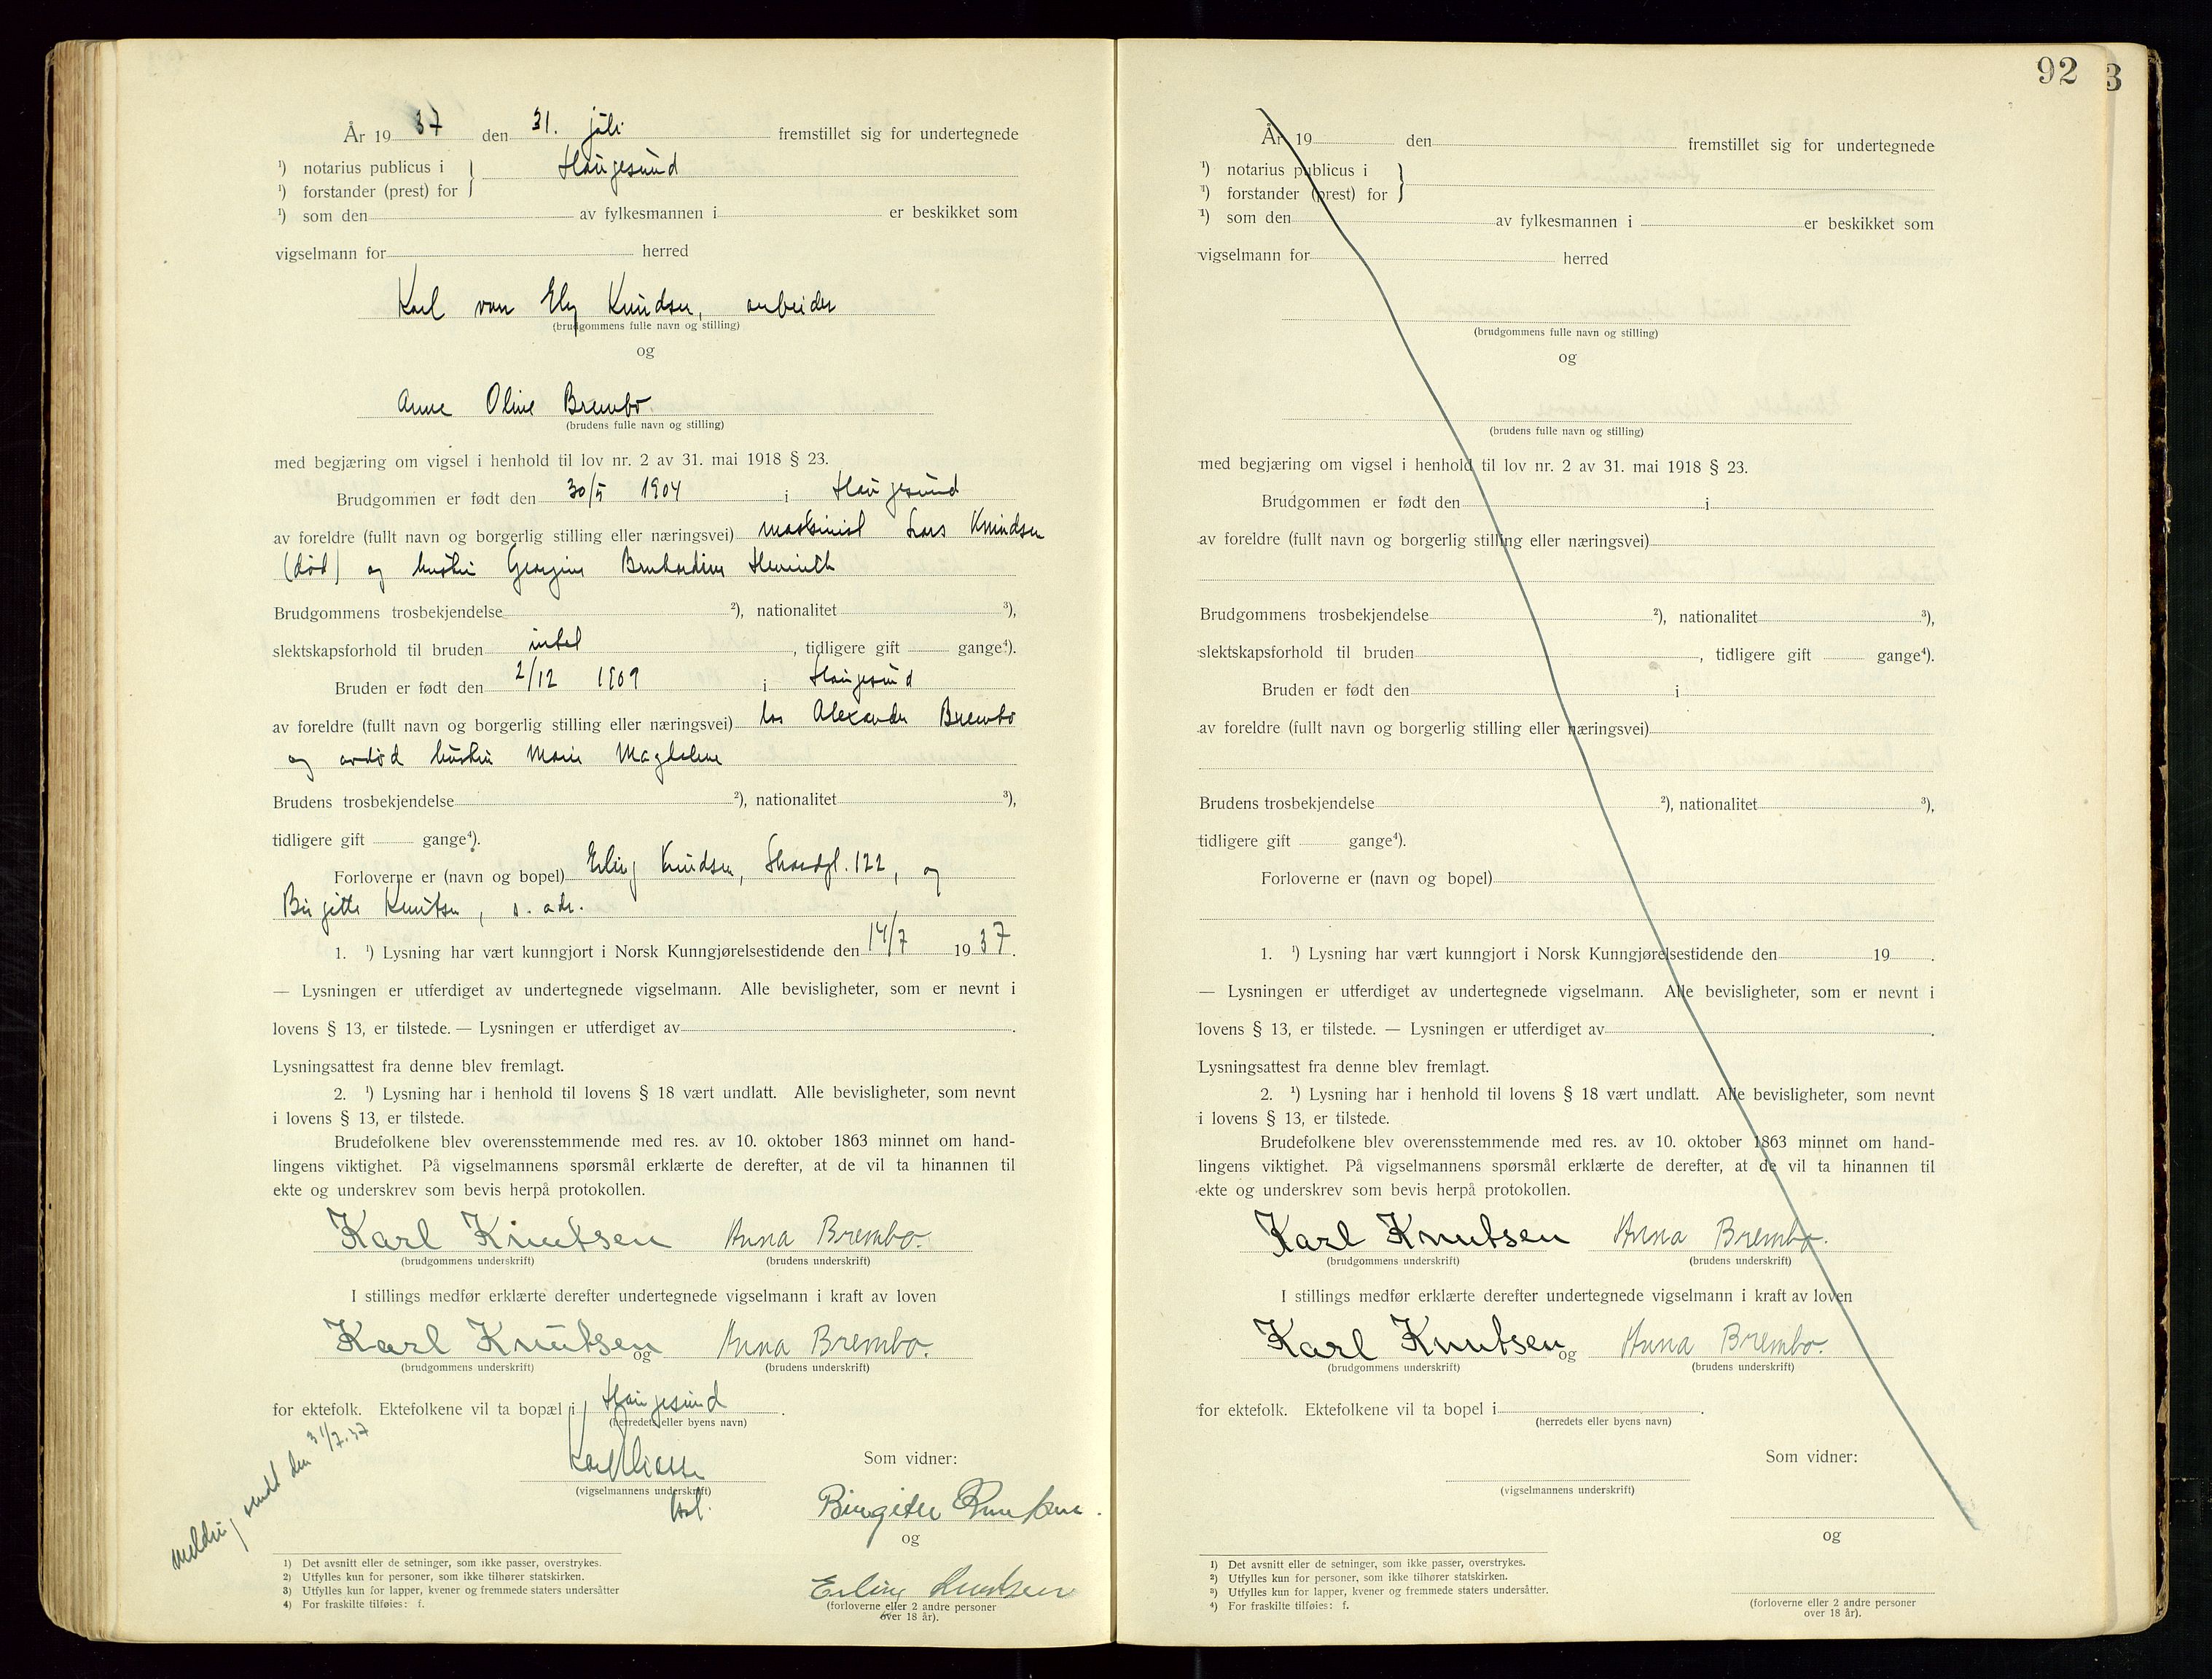 År 19 37 den 31. juli fremstillet sig for undertegnede
¹) notarius publicus i } Haugesund
¹) forstander (prest) for
¹) som den av fylkesmannen i er beskikket som
vigselmann for herred
Karl von Ely Knudsen, arbeider
(brudgommens fulle navn og stilling)
og
Anne Oline Brembo
(brudens fulle navn og stilling)
med begjæring om vigsel i henhold til lov nr. 2 av 31. mai 1918 § 23.
Brudgommen er født den 30/5 1904 i Haugesund
av foreldre (fullt navn og borgerlig stilling eller næringsvei) maskinist Lars Knudsen
(død) og hustru Georgine Bernhardine
Brudgommens trosbekjendelse ²), nationalitet ³),
slektskapsforhold til bruden intet, tidligere gift gange⁴).
Bruden er født den 2/12 1909 i Haugesund
av foreldre (fullt navn og borgerlig stilling eller næringsvei) los Alexander Brembo
og avdød hustru Marie Magdalene
Brudens trosbekjendelse ²), nationalitet ³),
tidligere gift gange⁴).
Forloverne er (navn og bopel) Erling Knudsen, Skaregt. 122, og
Birgitte Knutsen, s. adr.
1. ¹) Lysning har vært kunngjort i Norsk Kunngjørelsestidende den 14/7 19 37.
— Lysningen er utferdiget av undertegnede vigselmann. Alle bevisligheter, som er nevnt i
lovens § 13, er tilstede. — Lysningen er utferdiget av .
Lysningsattest fra denne blev fremlagt.
2. ¹) Lysning har i henhold til lovens § 18 vært undlatt. Alle bevisligheter, som nevnt
i lovens § 13, er tilstede.
Brudefolkene blev overensstemmende med res. av 10. oktober 1863 minnet om hand-
lingens viktighet. På vigselmannens spørsmål erklærte de derefter, at de vil ta hinannen til
ekte og underskrev som bevis herpå protokollen.
Karl Knutsen Anna Brembo.
(brudgommens underskrift) (brudens underskrift)
I stillings medfør erklærte derefter undertegnede vigselmann i kraft av loven
Karl Knutsen og Anna Brembo.
(brudgommens underskrift) (brudens underskrift)
for ektefolk. Ektefolkene vil ta bopæl i Haugesund .
(herredets eller byens navn)
Som vidner:
(vigselmannens underskrift)
Birgitte Knutsen.
og
Erling Knutsen
(forloverne eller 2 andre personer
over 18 år).
melding sendt den 31/7.37
1) Det avsnitt eller de setninger, som ikke passer, overstrykes.
2) Utfylles kun for personer, som ikke tilhører statskirken.
3) Utfylles kun for lapper, kvener og fremmede staters undersåtter
4) For fraskilte tilføies: f.
92 3
År 19 den fremstillet sig for undertegnede
¹) notarius publicus i }
¹) forstander (prest) for
¹) som den av fylkesmannen i er beskikket som
vigselmann for herred
(brudgommens fulle navn og stilling)
og
(brudens fulle navn og stilling)
med begjæring om vigsel i henhold til lov nr. 2 av 31. mai 1918 § 23.
Brudgommen er født den i
av foreldre (fullt navn og borgerlig stilling eller næringsvei)
Brudgommens trosbekjendelse ²), nationalitet ³),
slektskapsforhold til bruden , tidligere gift gange⁴).
Bruden er født den i
av foreldre (fullt navn og borgerlig stilling eller næringsvei)
Brudens trosbekjendelse ²), nationalitet ³),
tidligere gift gange⁴).
Forloverne er (navn og bopel)
1. ¹) Lysning har vært kunngjort i Norsk Kunngjørelsestidende den 19 .
— Lysningen er utferdiget av undertegnede vigselmann. Alle bevisligheter, som er nevnt i
lovens § 13, er tilstede. — Lysningen er utferdiget av .
Lysningsattest fra denne blev fremlagt.
2. ¹) Lysning har i henhold til lovens § 18 vært undlatt. Alle bevisligheter, som nevnt
i lovens § 13, er tilstede.
Brudefolkene blev overensstemmende med res. av 10. oktober 1863 minnet om hand-
lingens viktighet. På vigselmannens spørsmål erklærte de derefter, at de vil ta hinannen til
ekte og underskrev som bevis herpå protokollen.
Karl Knutsen Anna Brembo.
(brudgommens underskrift) (brudens underskrift)
I stillings medfør erklærte derefter undertegnede vigselmann i kraft av loven
Karl Knutsen og Anna Brembo.
(brudgommens underskrift) (brudens underskrift)
for ektefolk. Ektefolkene vil ta bopel i .
(herredets eller byens navn)
Som vidner:
(vigselmannens underskrift)
og
(forloverne eller 2 andre personer
over 18 år).
1) Det avsnitt eller de setninger, som ikke passer, overstrykes.
2) Utfylles kun for personer, som ikke tilhører statskirken.
3) Utfylles kun for lapper, kvener og fremmede staters undersåtter.
4) For fraskilte tilføies: f.